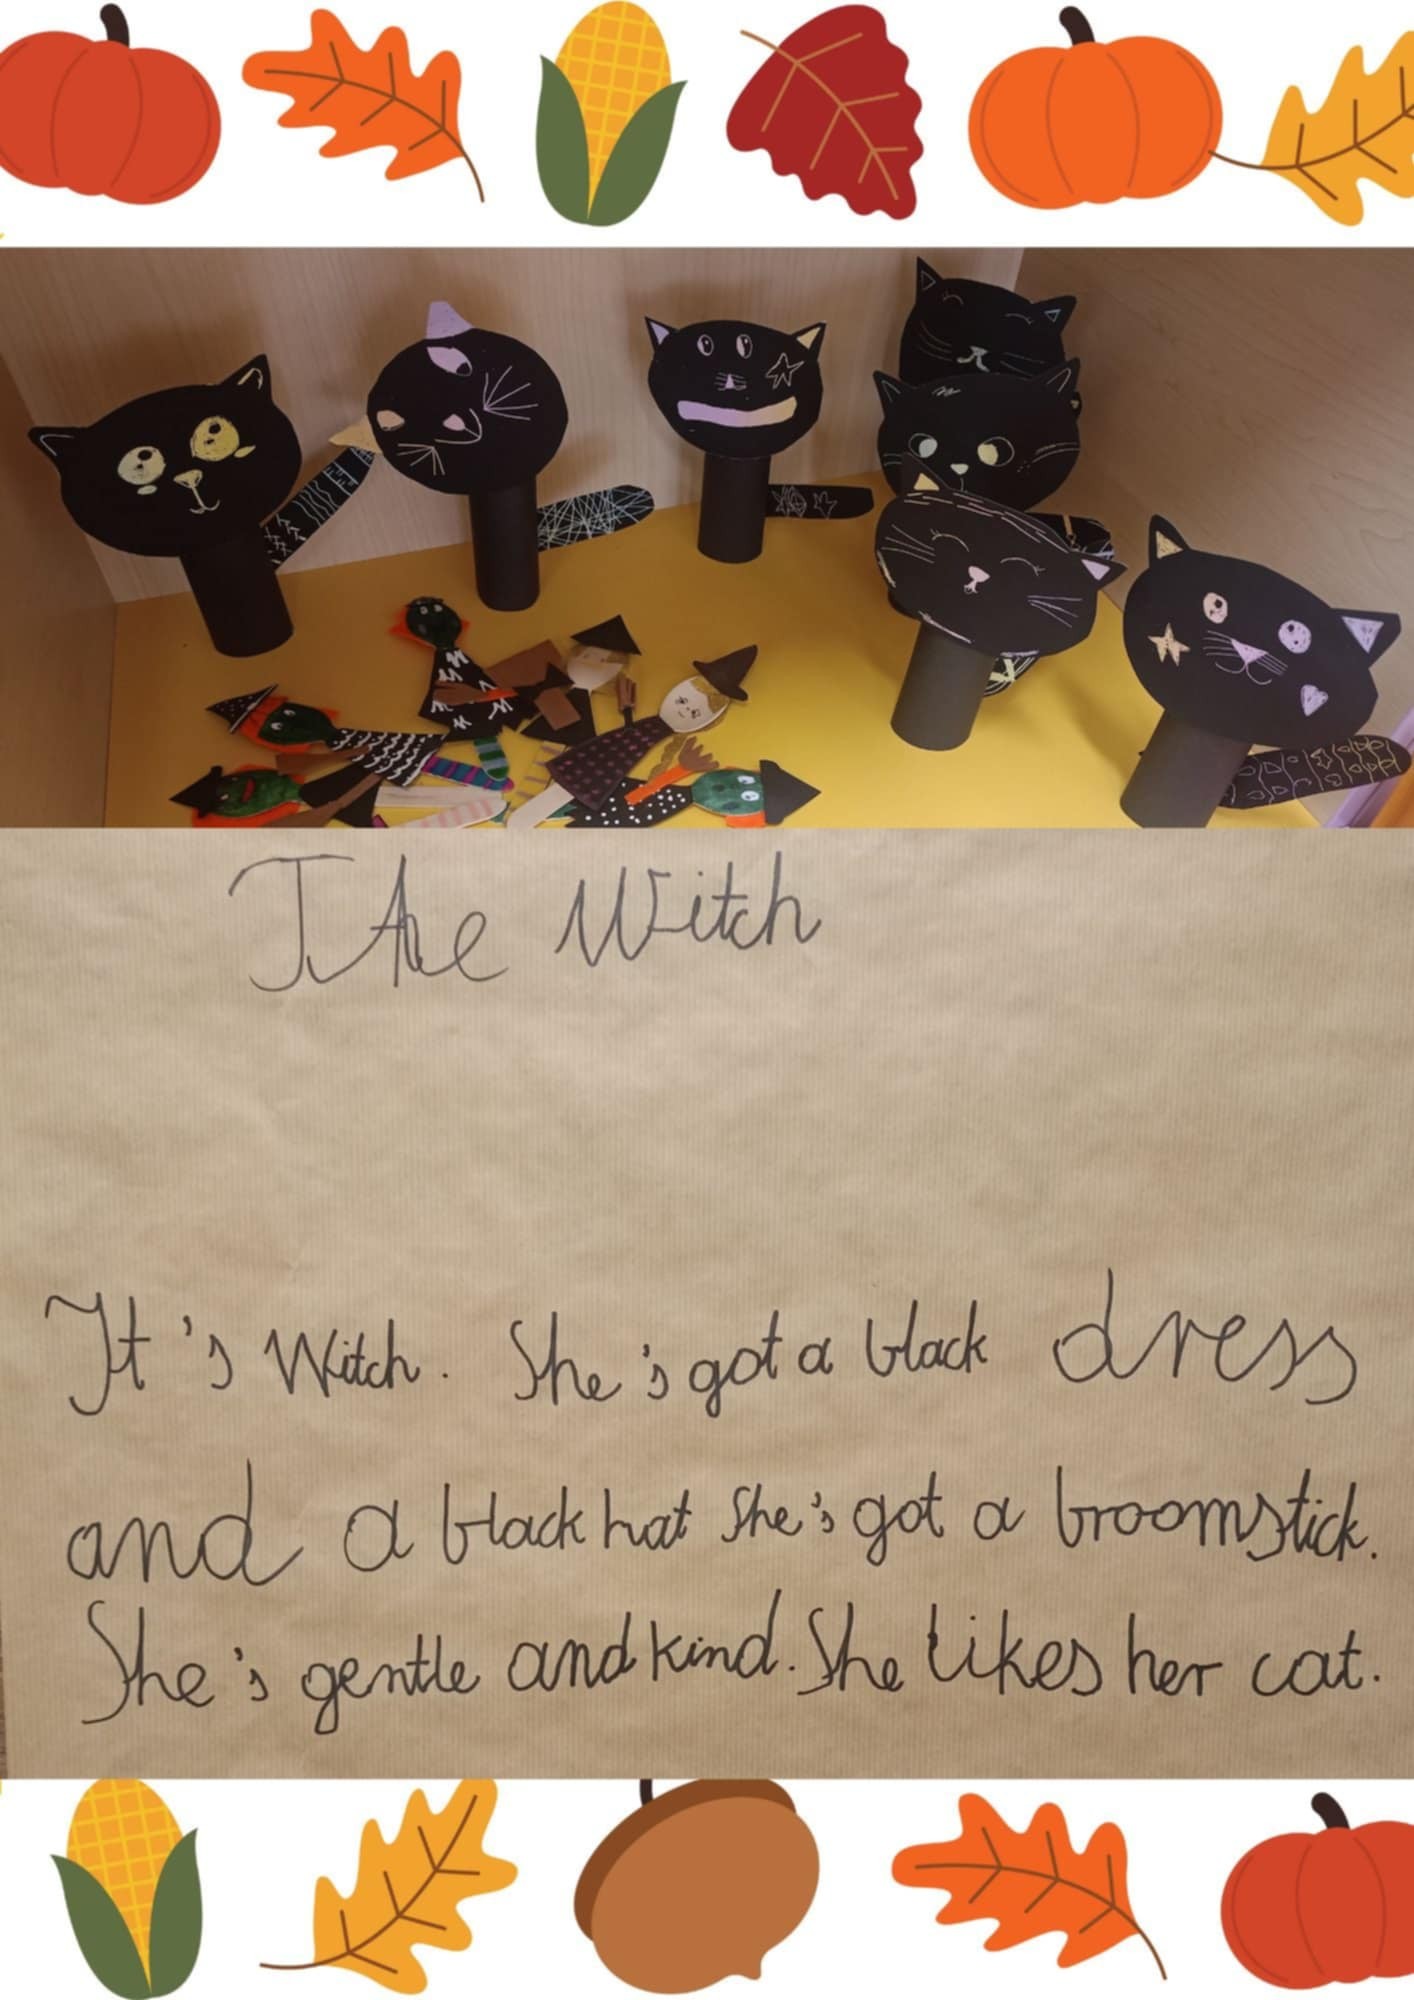 The Witch
It's Witch. She's got a black dress
and a black hat She's got a broomstick.
She's gentle and kind. She likes her cat.